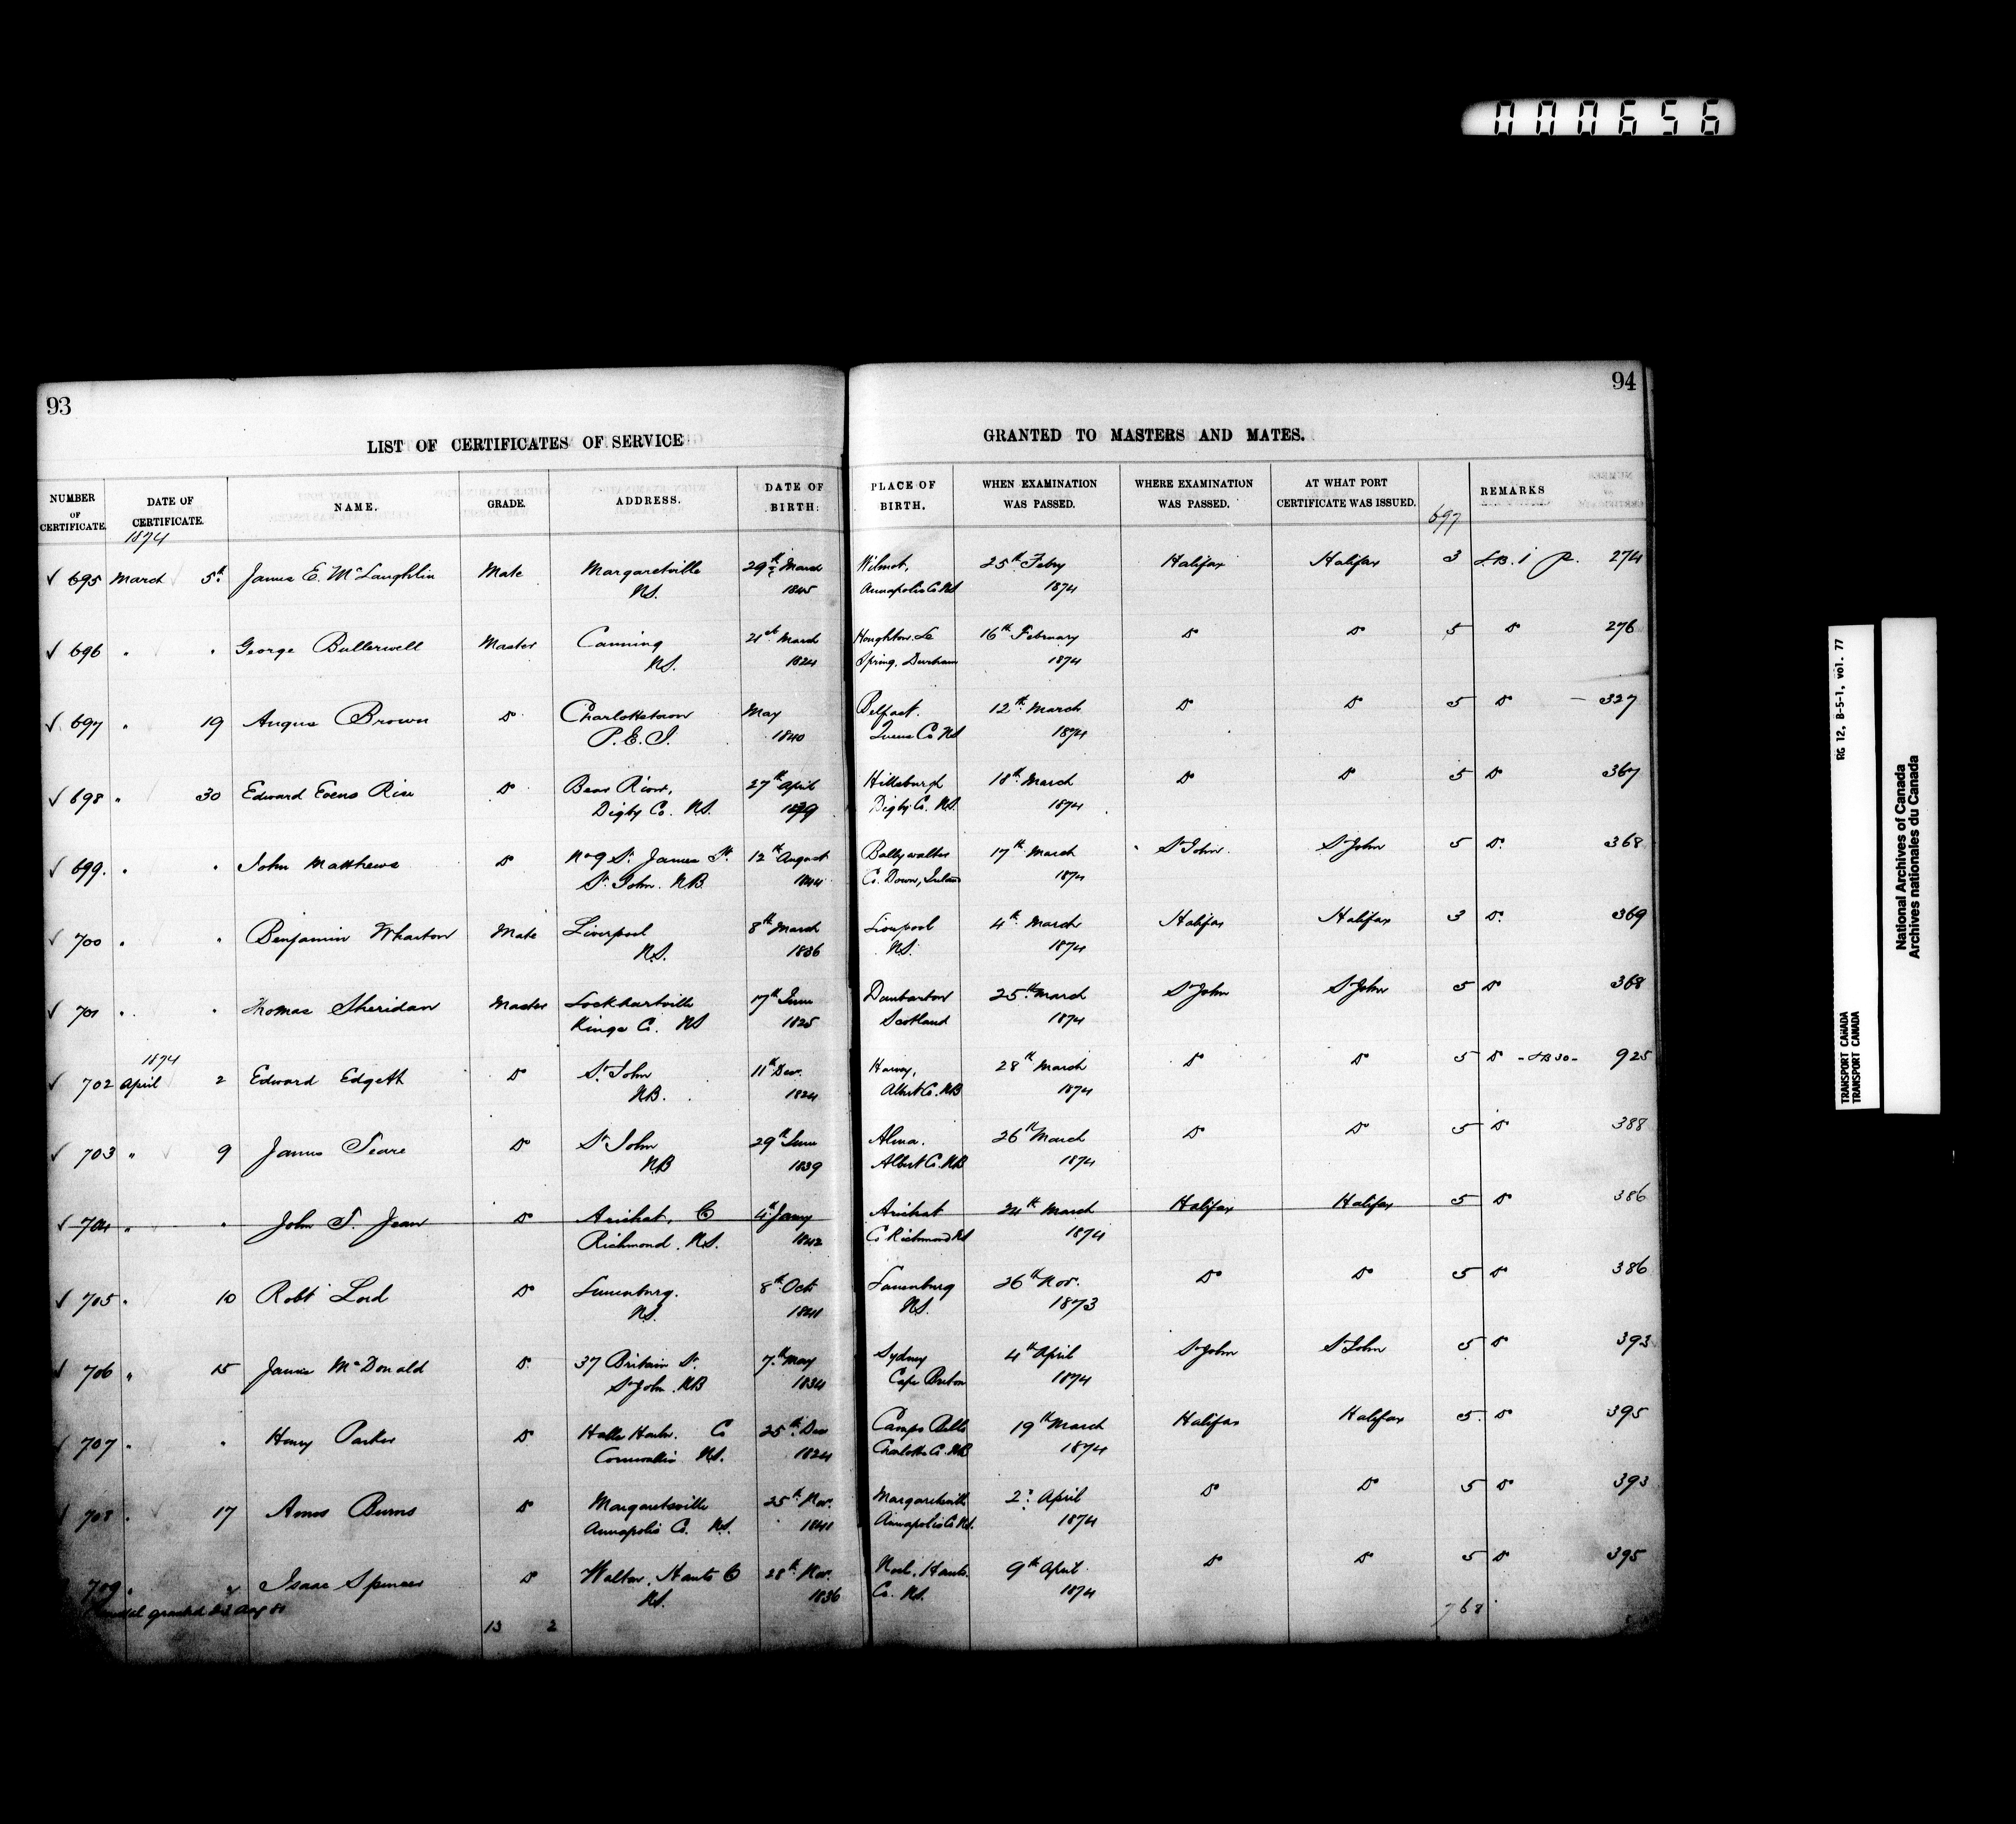 000656
93
94
LIST OF CERTIFICATES OF SERVICE GRANTED TO MASTERS AND MATES.
NUMBER OF CERTIFICATE. DATE OF CERTIFICATE. NAME. GRADE. ADDRESS. DATE OF BIRTH. PLACE OF BIRTH. WHEN EXAMINATION WAS PASSED. WHERE EXAMINATION WAS PASSED. AT WHAT PORT CERTIFICATE WAS ISSUED. REMARKS
1874 697
✓ 695 March 5th James E. McLaughlin Mate Margaretville 29th March Wilmot, 25th Feby Halifax Halifax 3 L.B. 1 p. 274
N.S. 1845 Annapolis Co NS 1874
✓ 696 " " George Bullerwell Master Canning 21st March Houghton Le 16th February Do Do 5 Do 276
N.S. 1824 Spring, Durham 1874
✓ 697 " 19 Angus Brown Do Charlottetown May Belfast. 12th March Do Do 5 Do 327
P.E.I. 1840 Queens Co 1874
✓ 698 " 30 Edward Evens Rice Do Bear River, 27th April Hillsburgh 18th March Do Do 5 Do 367
Digby Co. N.S. Digby Co. N.S. 1874
✓ 699. " " John Matthews Do No 9 St. James St. 12th August Ballywalter 17th March St John. St John 5 Do 368
St. John. N.B. 1844 Co. Down, Ireland 1874
✓ 700 " " Benjamin Wharton Mate Liverpool 8th March Liverpool 4th March Halifax Halifax 3 Do 369
N.S. 1836 N.S. 1874
✓ 701 " " Thomas Sheridan Master Lockhartville 17th June Dunbarton 25th March St John St John 5 Do 368
Kings Co. NS 1825 Scotland 1874
1874
✓ 702 April 2 Edward Edgett Do St. John 11th Dec. Harvey, 28th March Do Do 5 Do - LB 30 - 925
N.B. 1824 Albert Co. NB 1874
✓ 703 " 9 James Do St John 29th June Alma. 26th March Do Do 5 Do 388
NB 1839 Albert Co. NB 1874
✓ 704 " " John T. Jean Do Arichat, C 4th Jany Arichat 24th March Halifax Halifax 5 Do 386
Richmond. N.S. 1842 Co Richmond NS 1874
✓ 705 " 10 Robt Lord Do Lunenburg. 8th Oct Lunenburg 26th Nov. Do Do 5 Do 386
N.S. 1841 N.S. 1873
✓ 706 " 15 James McDonald Do 37 Britain St. 7th May Sydney 4th April St John St John 5 Do 393
St John. NB 1834 Cape Breton 1874
✓ 707 " " Henry Parker Do Halls Harbr. Co 25th Dec Campo Bello 19th March Halifax Halifax 5 Do 395
Cornwallis N.S. 1824 Charlotte Co. NB 1874
708 " 17 Amos Burns Do Margaretsville 25th Nov. Margaretsville 2d April Do Do 5 Do 393
Annapolis Co. N.S. 1841 Annapolis Co N.S. 1874
709 " " Isaac Spencer Do Walton, Hants Co 28th Nov. Noel, Hants. 9th April Do Do 5 Do 395
granted Aug 81 N.S. 1836 Co. N.S. 1874
13 2 768
RG 12, B-5-1, vol. 77
TRANSPORT CANADA
TRANSPORT CANADA
National Archives of Canada
Archives nationales du Canada